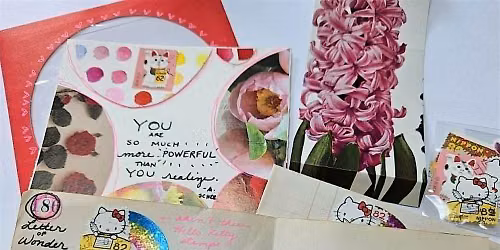 62
YOU
ARE
SO MUCH
more "POWERFUL"
THAN
YOU realize.
NIPPON
8
Letter
OF
Wonder
82
Hello Kitty
Stamps
82
NIPPON